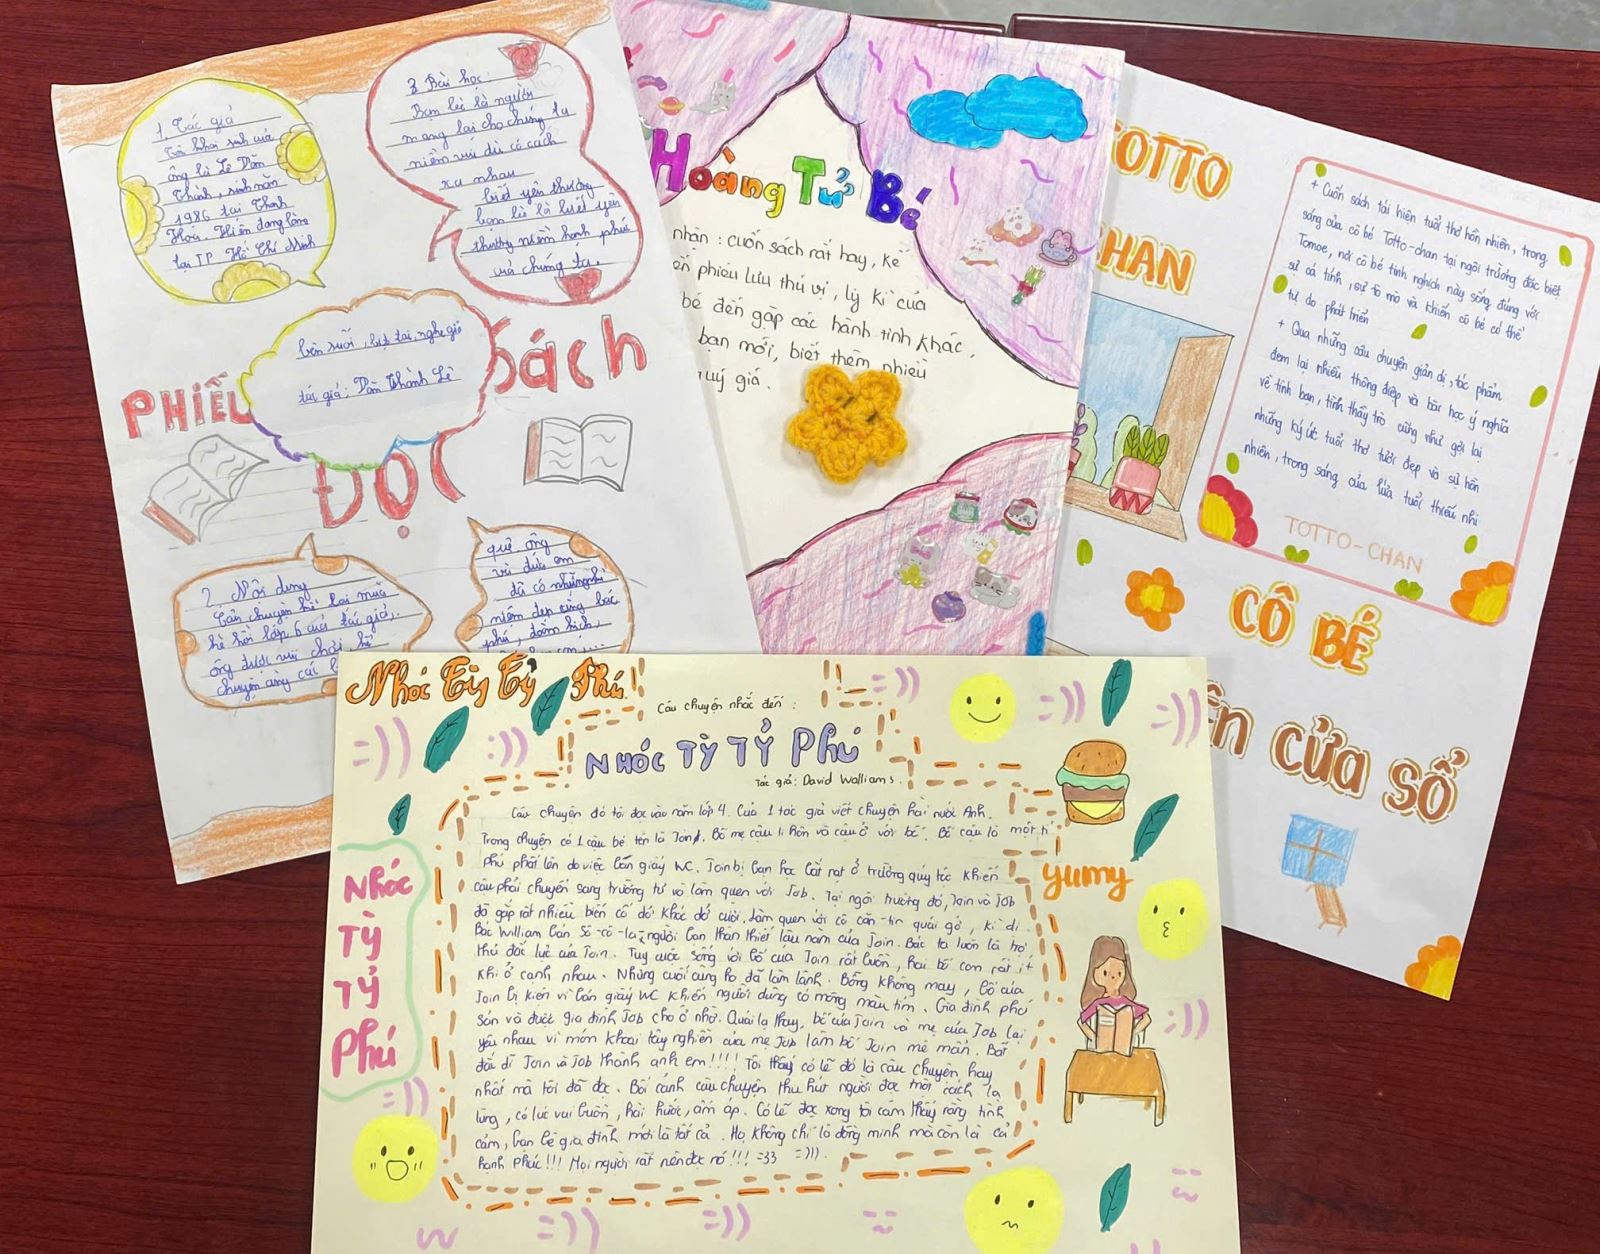 1. Tác giả
Tên khai sinh của
ông là Lê Văn
Thành, sinh năm
1986 tại Thanh
Hoá. Hiện đang làm
tại TP Hồ Chí Minh
3 Bài học:
Bạn bè là người
mang lại cho chúng ta
niềm vui dù có cách
xa nhau
biết yêu thương
bạn bè là biết yêu
thương niềm hạnh phúc
của chúng ta.
bên suối, bịt tai, nghe gió
tác giả: Văn Thành Lê
PHIẾU
ĐỌC
Sách
2 Nội dung
Câu chuyện kể lại mùa
hè hồi lớp 6 của tác giả,
ông được vui chơi, kể
chuyện cùng các
quê ông
và đứa em
đã có những kỉ
niệm đẹp cùng bác
phú, đoàn kịch,
Hoàng Tử Bé
nhận : cuốn sách rất hay, kể
phiêu lưu thú vị, lỳ kì của
bé đến gặp các hành tinh khác,
bạn mới, biết thêm nhiều
quý giá.
TOTTO
CHAN
+ Cuốn sách tái hiện tuổi thơ hồn nhiên, trong
sáng của cô bé Totto-chan tại ngôi trường đặc biệt
Tomoe, nơi cô bé tinh nghịch này sống đúng với
sự cá tính, sự tò mò và khiến cô bé có thể
tự do phát triển
+ Qua những câu chuyện giản dị, tác phẩm
đem lại nhiều thông điệp và bài học ý nghĩa
về tình bạn, tình thầy trò cũng như gợi lại
những ký ức tuổi thơ tươi đẹp và sự hồn
nhiên, trong sáng của lứa tuổi thiếu nhi
TOTTO-CHAN
CÔ BÉ
ên CỬA SỔ
Nhóc Tỳ Tỷ Phú!
Câu chuyện nhắc đến :
NHÓC TỲ TỶ Phú
Tác giả: David Walliams.
Câu chuyện đó tôi đọc vào năm lớp 4. Của 1 tác giả viết chuyện hài nước Anh.
Trong chuyện có 1 cậu bé tên là Join. Bố mẹ cậu li hôn và cậu ở với bố. Bố cậu là một tỉ
phú phất lên do việc bán giấy WC. Join bị bạn học bắt nạt ở trường quý tộc khiến
cậu phải chuyển sang trường tư và làm quen với Job. Tại ngôi trường đó, Join và Job
đã gặp rất nhiều biến cố dở khóc dở cười. Làm quen với cô căn-tin quái gở, kì dị.
Bác William bán Sô-cô-la, người bạn thân thiết lâu năm của Join. Bác ta luôn là trợ
thủ đắc lực của Join. Tuy cuộc sống với bố của Join rất buồn, hai bố con rất ít
khi ở cạnh nhau. Nhưng cuối cùng họ đã làm lành. Bỗng không may, bố của
Join bị kiện vì bán giấy WC khiến người dùng có mông màu tím. Gia đình phá
sản và được gia đình Job cho ở nhờ. Quái lạ thay, bố của Join và mẹ của Job lại
yêu nhau vì món khoai tây nghiền của mẹ Job làm bố Join mê mẩn. Bất
đắc dĩ Join và Job thành anh em!!!! Tôi thấy có lẽ đó là câu chuyện hay
nhất mà tôi đã đọc. Bối cảnh câu chuyện thu hút người đọc một cách lạ
lùng, có lúc vui buồn, hài hước, ấm áp. Có lẽ đọc xong tôi cảm thấy rằng tình
cảm, bạn bè gia đình mới là tất cả. Họ không chỉ là đồng minh mà còn là cả
hạnh phúc!!! Mọi người rất nên đọc nó!!! =33 =))).
Nhóc
TỲ
TỶ
Phú
yumy
=))
:))
=))
=))
=))
:))
=))
=))
=))